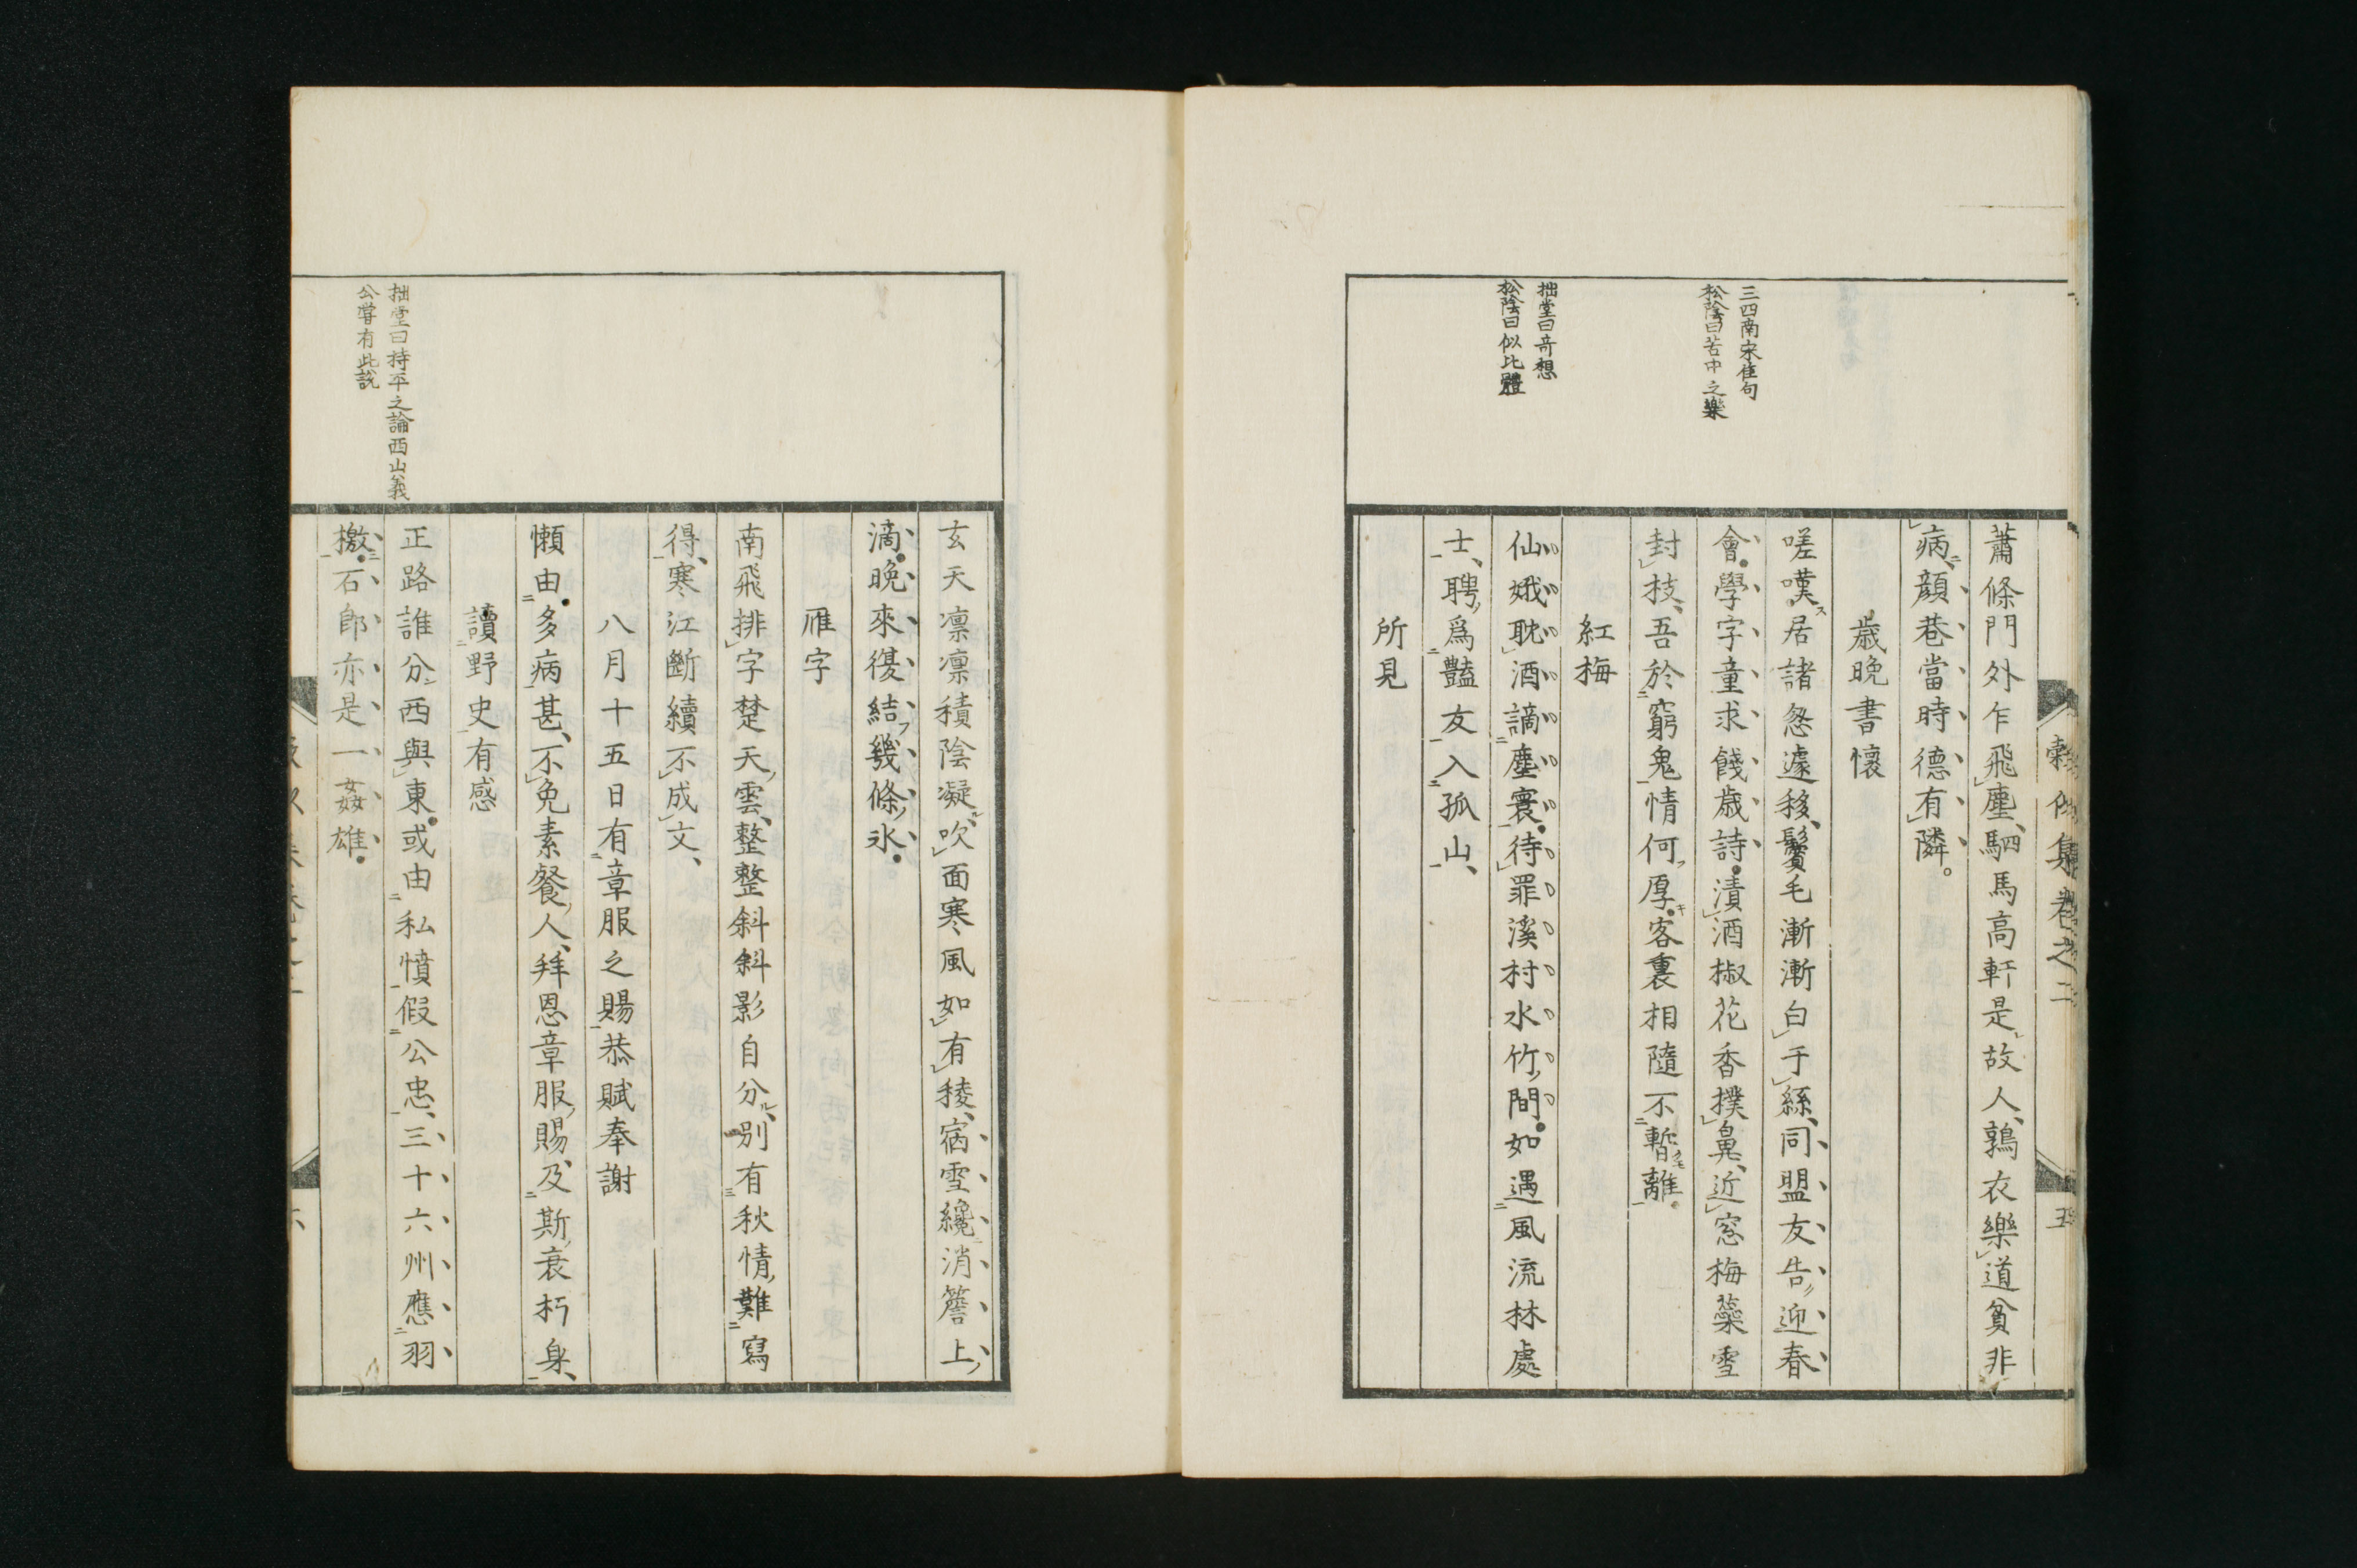 蕭條門外乍飛塵駟馬高軒是故人鶉衣樂道貧非
病顔巷當時德有隣
歳晩書懷
嗟嘆居諸怱遽移鬢毛漸漸白于絲同盟友告迎春
會學字童求餞歳詩漬酒椒花香撲鼻近窓梅蘂雪
封枝吾於窮鬼情何厚客裏相隨不暫離
紅梅
仙娥耽酒謫塵寰待罪溪村水竹間如遇風流林處
士聘爲豔友入孤山
所見
三四南宋佳句
松陰曰苦中之樂
拙堂曰奇想
松陰曰似比體
集卷之二
五
玄天凛凛積陰凝吹面寒風如有稜宿雪纔消簷上
滴晩來復結幾條氷
雁字
南飛排字楚天雲整整斜斜影自分別有秋情難寫
得寒江斷續不成文
八月十五日有章服之賜恭賦奉謝
懶由多病甚不免素餐人拜恩章服賜及斯衰朽身
讀野史有感
正路誰分西與東或由私憤假公忠三十六州應羽
檄石郎亦是一姦雄
拙堂曰持平之論西山義
公嘗有此說